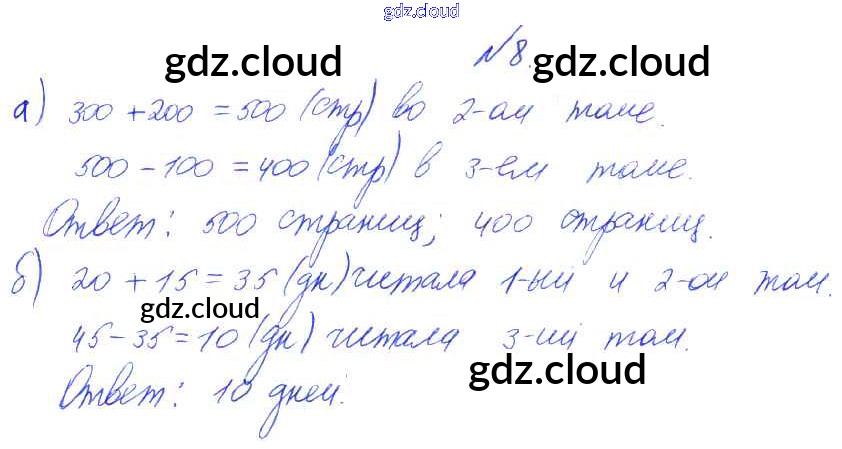 gdz.cloud
gdz.cloud gdz.cloud №8.
а) 300 + 200 = 500 (стр) во 2-ом томе.
500 - 100 = 400 (стр) в 3-ем томе.
Ответ: 500 страниц; 400 страниц.
б) 20 + 15 = 35 (дн) читала 1-ый и 2-ой том.
gdz.cloud
45 - 35 = 10 (дн) читала 3-ий том.
gdz.cloud
Ответ: 10 дней.